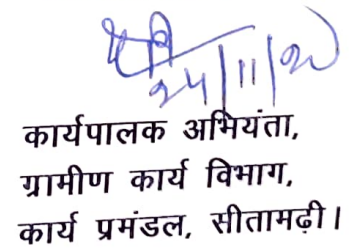 २५/११/२०
कार्यपालक अभियंता,
ग्रामीण कार्य विभाग,
कार्य प्रमंडल, सीतामढ़ी।